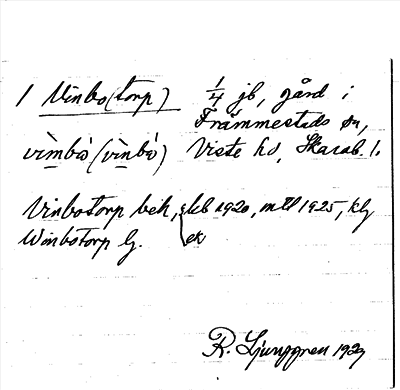 1 Vinbo(torp) 1/4 jb, gård i
Främmestads sn,
vìmbò (vìnbò) Viste hd, Skarab. l.
Vinbotorp bek, kb 1920, mtl 1925, klg
Winbotorp lg. ek
R. Ljunggren 1929